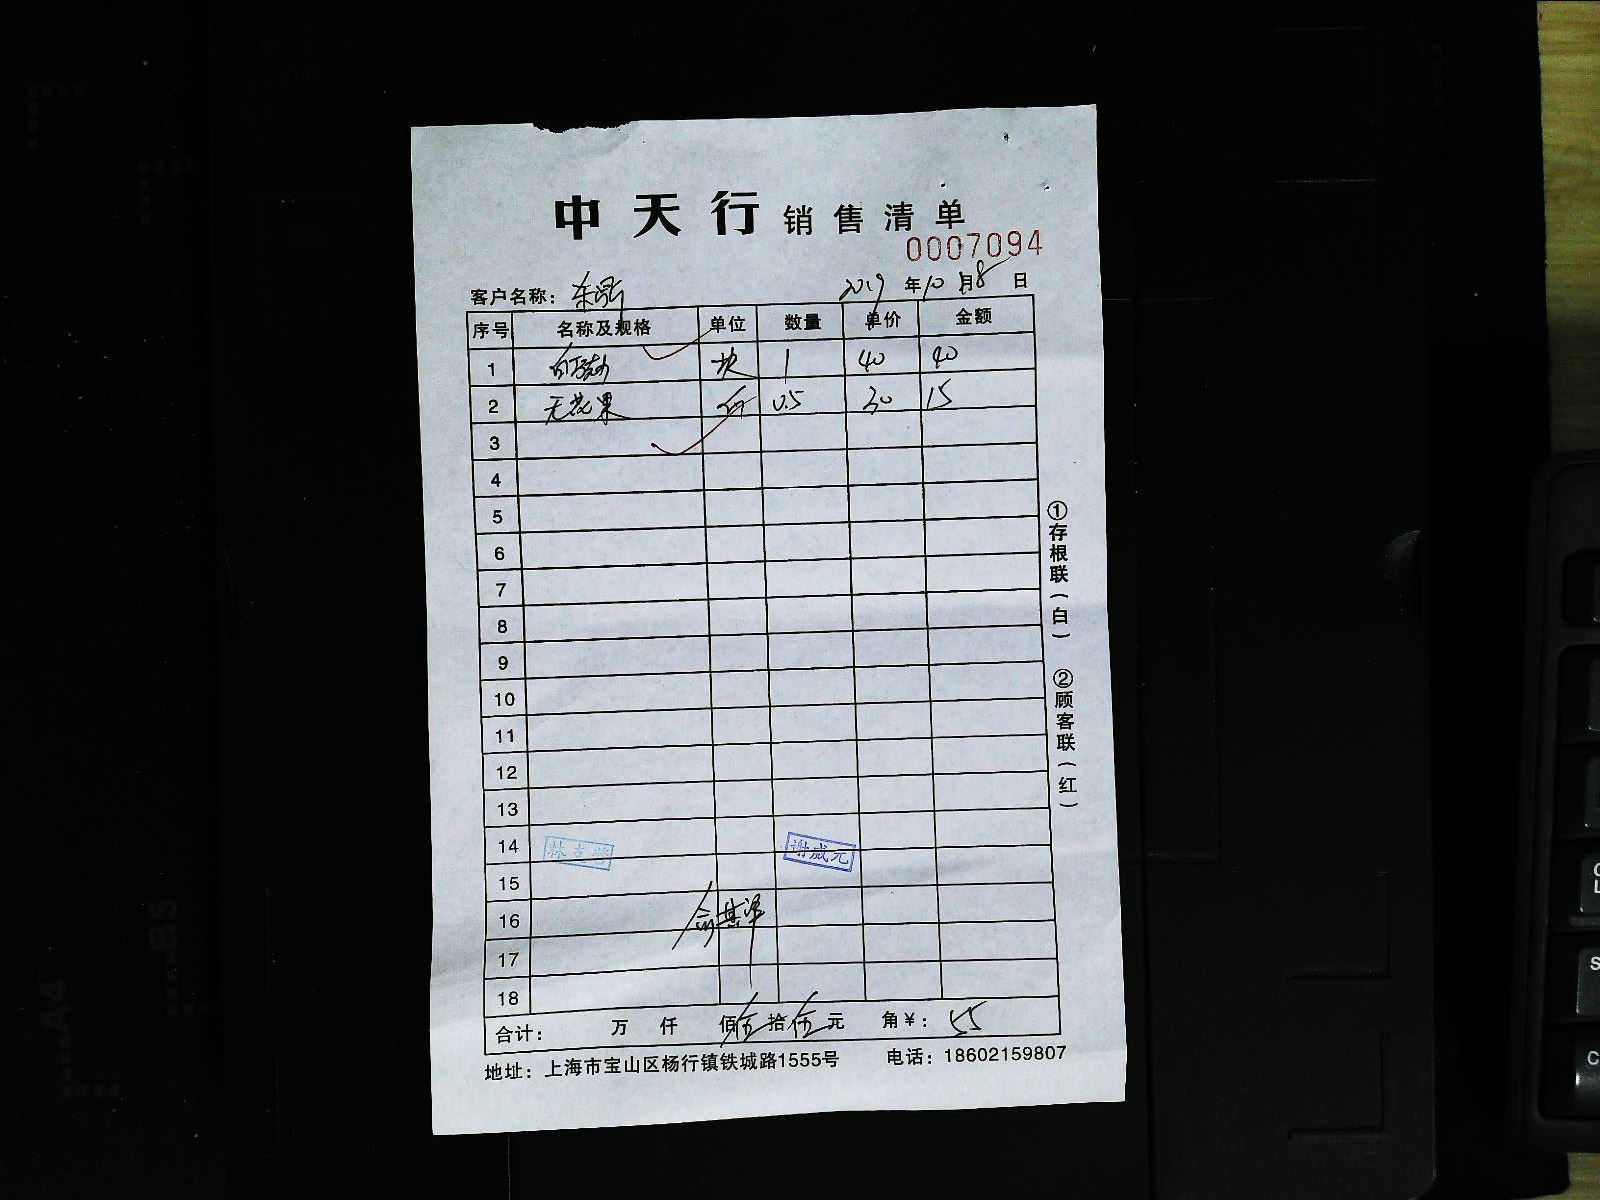 中天行 销售清单
0007094
客户名称： 2019 年 10 月 8 日
序号 名称及规格 单位 数量 单价 金额
1 块 1 40 40
2 无花果 斤 0.5 30 15
3
4
5
6
7
8
9
10
11
12
13
14
15
16
17
18
①存根联（白） ②顾客联（红）
谢威元
合计： 万 仟 佰 伍 拾 伍 元 角 ￥： 55
地址：上海市宝山区杨行镇铁城路1555号 电话：18602159807
A4
B5